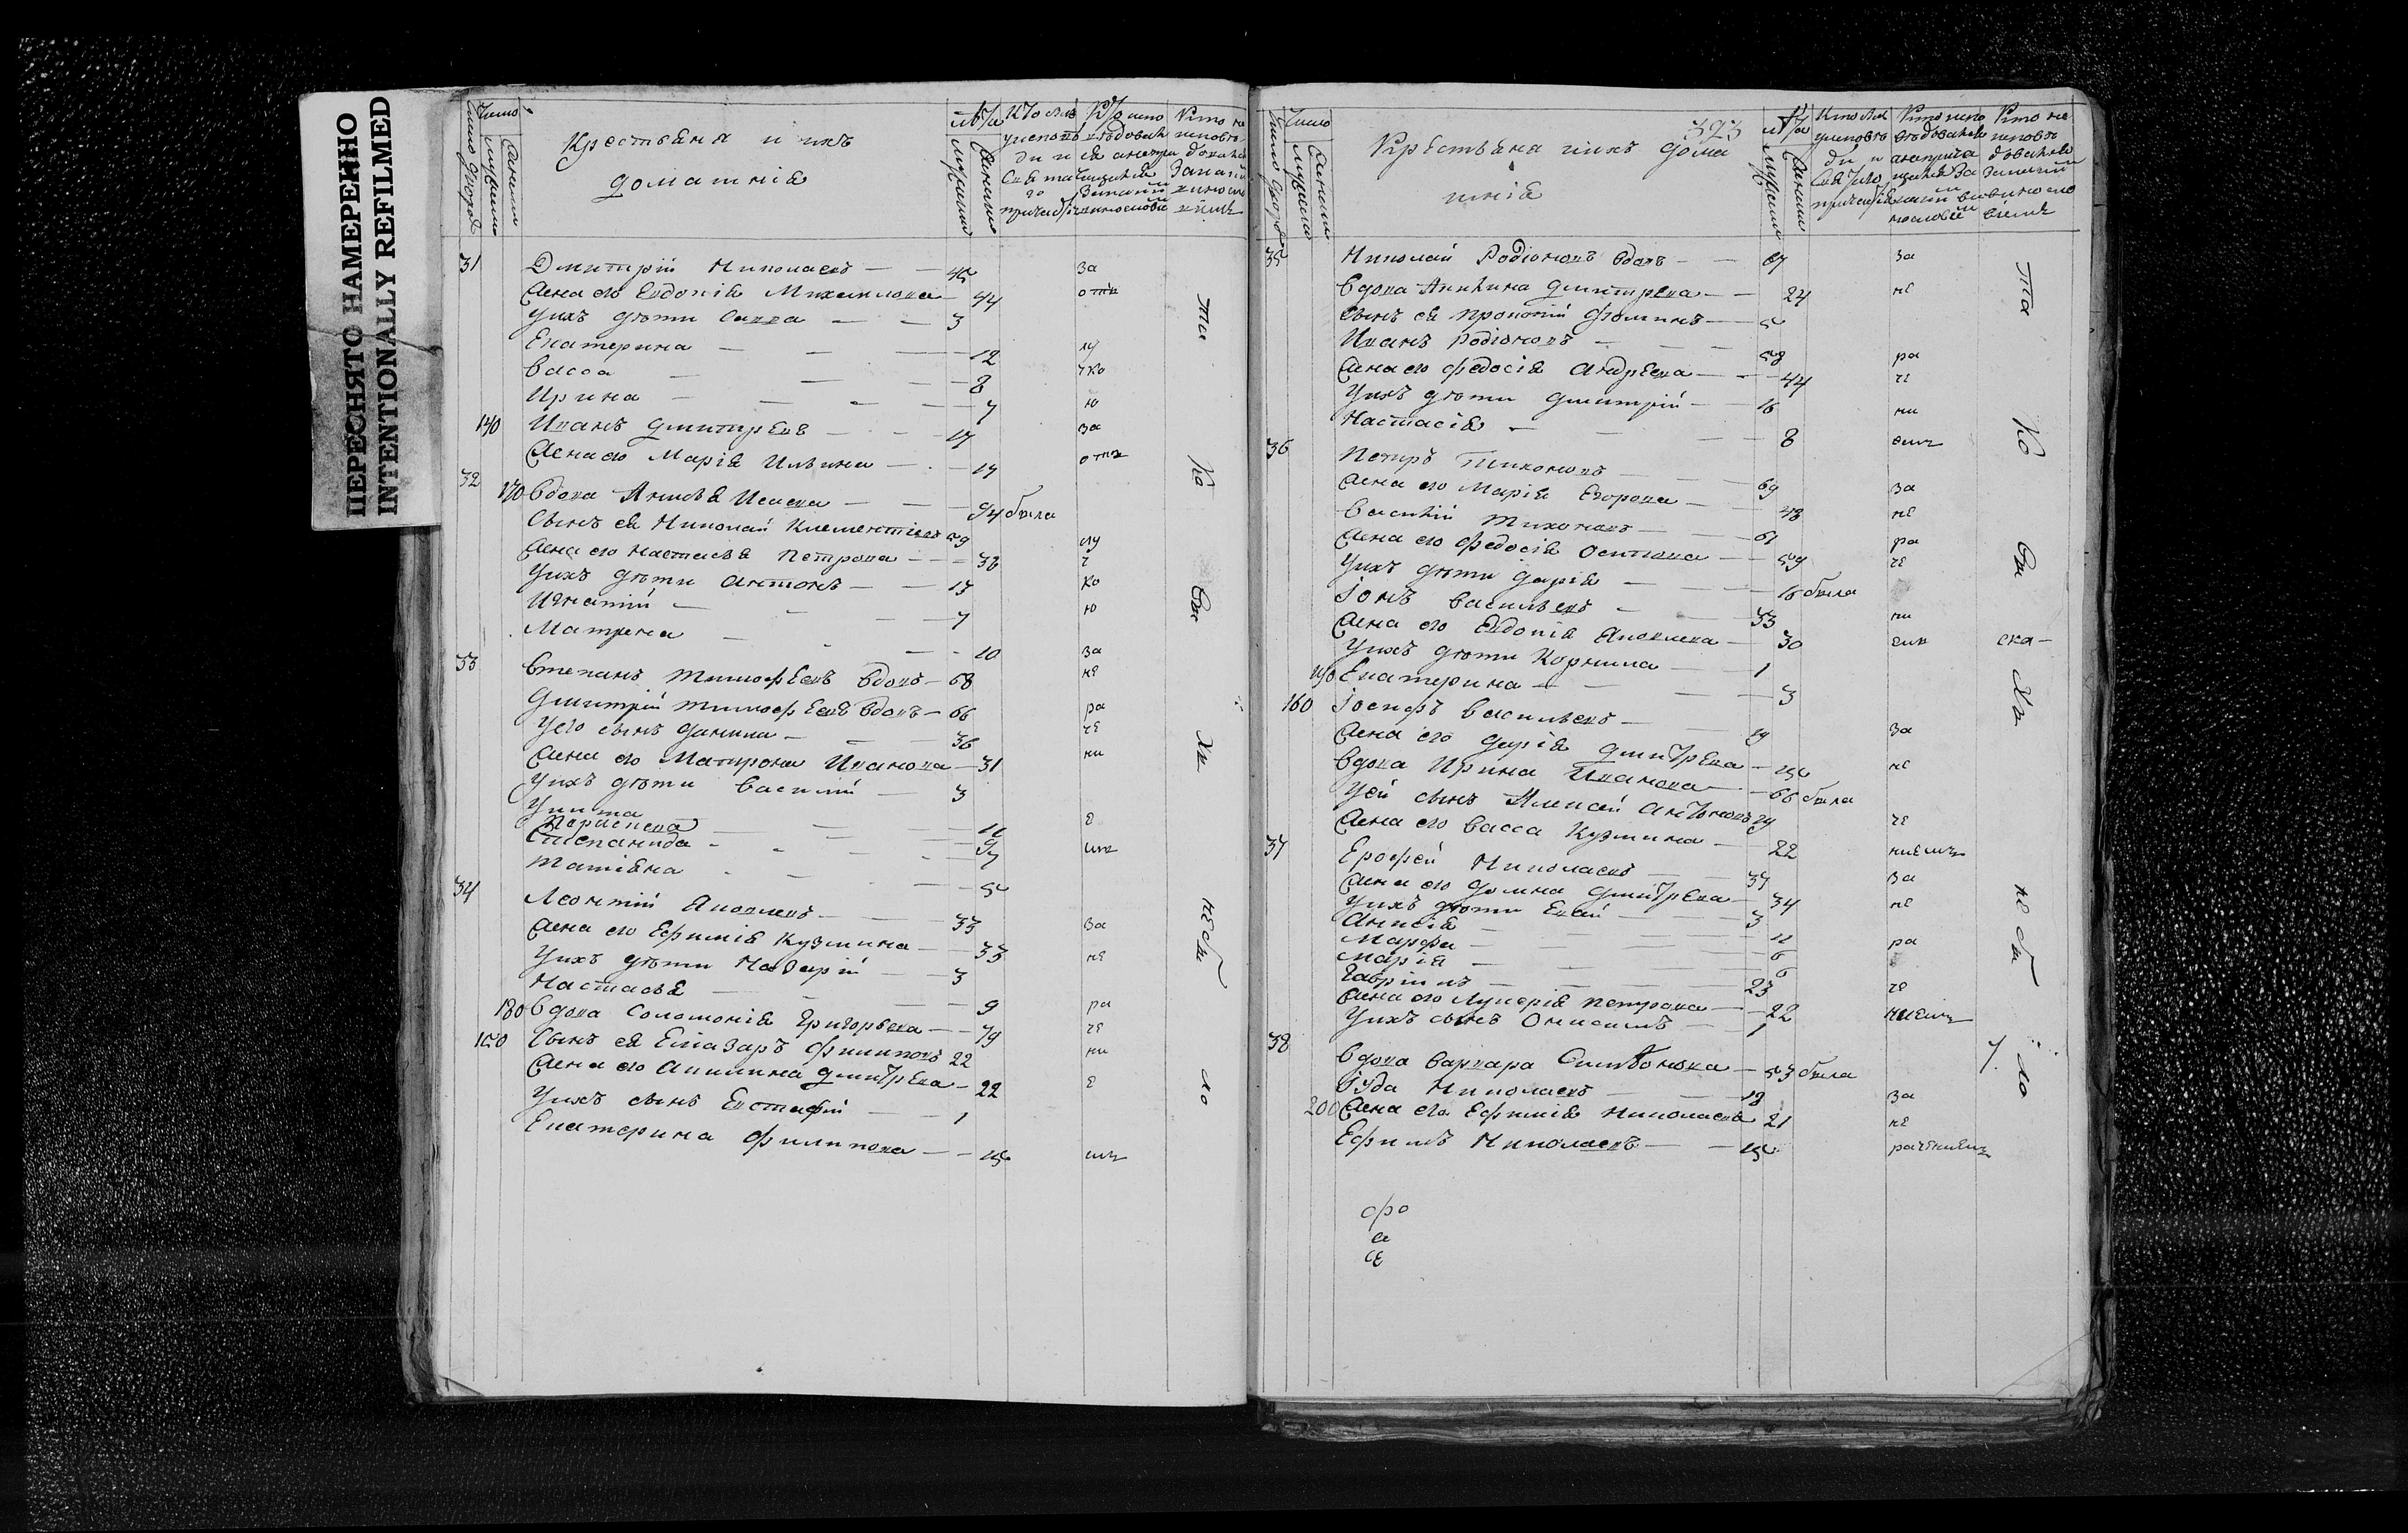 ПЕРЕСНЯТО НАМЕРЕННО
INTENTIONALLY REFILMED
Крестьяня и ихъ
домашнія
31 Дмитрій Николаевъ — 45 за
Жена его Евдокія Михаилова — 44 отлу
Уихъ дѣти Савва — 3
Екатерина — 12 лу
Васса — 8 чко
Ирина — 7 ю
140 Иванъ Дмитревъ — 17 за
Жена его Марія Ильина — 17
32 170 Вдова Анисья Исаева — 74 была
Сынъ ея Николай Климентіевъ 39 лу
Жена его Настасья Петрова — 36 ч
Уихъ дѣти Антонъ — 13 ко
Игнатій — 7 ю
Матрена — 10 за
33 Степанъ Тимофеевъ вдовъ — 68 не
Дмитрій Тимофеевъ вдовъ — 66 ра
Уего сынъ Данила — 36 че
Жена его Матрона Иванова — 31 ни
Уихъ дѣти Василій — 3
Улита
Параскева — 11 е
Степанида — 9 мъ
Татіяна — 5
34 Леонтій Яковлевъ — 33 за
Жена его Ефимія Кузмина — 33 не
Уихъ дѣти Макарій — 3
Настасья — 9 ра
180 Вдова Соломонія Григорьева — 79 че
150 Сынъ ея Елиазаръ Филиповъ 22 ни
Жена его Акилина Дмитрева — 22 е
Уихъ сынъ Евстафій — 1
Екатерина Филипова — 15 мъ
та ко вы хъ не бы ло
393
Крестьяна иихъ дома
шнія
35 Николай Родіоновъ вдовъ — 67 за
Вдова Акилина Дмитрева — 24 не
Сынъ ея Прокопій Фоминъ — 5
Иванъ Родіоновъ — 58 ра
Жена его Федосія Андреева — 44 че
Уихъ дѣти Дмитрій — 16 ни
Настасія — 8 емъ
36 Петръ Тихоновъ — 69 за
Жена его Марія Егорова — 48 не
Василій Тихоновъ — 61 ра
Жена его Федосія Осипова — 59 че
Уихъ дѣти Дарія — 16 была
Іонъ Васильевъ — 33 ни
Жена его Евдокія Яковлева — 30 емъ
Уихъ дѣти Корнила — 1
190 Екатерина — 3
160 Іосифъ Васильевъ — 19 за
Жена его Дарія Дмитрева — 15 не
Вдова Ирина Иванова — 66 была
Уей сынъ Алексей Антоновъ 29 че
Жена его Васса Кузмина — 22 ниемъ
37 Ерофей Николаевъ — 37 за
Жена его Домна Дмитрева — 34 не
Уихъ дѣти Евсй — 3
Анисія — 11
Марфа — 6 ра
Марія — 6
Гавріилъ — 23 че
Жена его Лукерія Петрова — 22 ниемъ
Уихъ сынъ Онисимъ — 1
38 Вдова Варвара Симеонова — 53 была
Іуда Николаевъ — 18 за
200 Жена его Ефимія Николаева 21 не
Ефимъ Николаевъ — 15 рачениемъ
та ко вы ска- хъ не бы ло